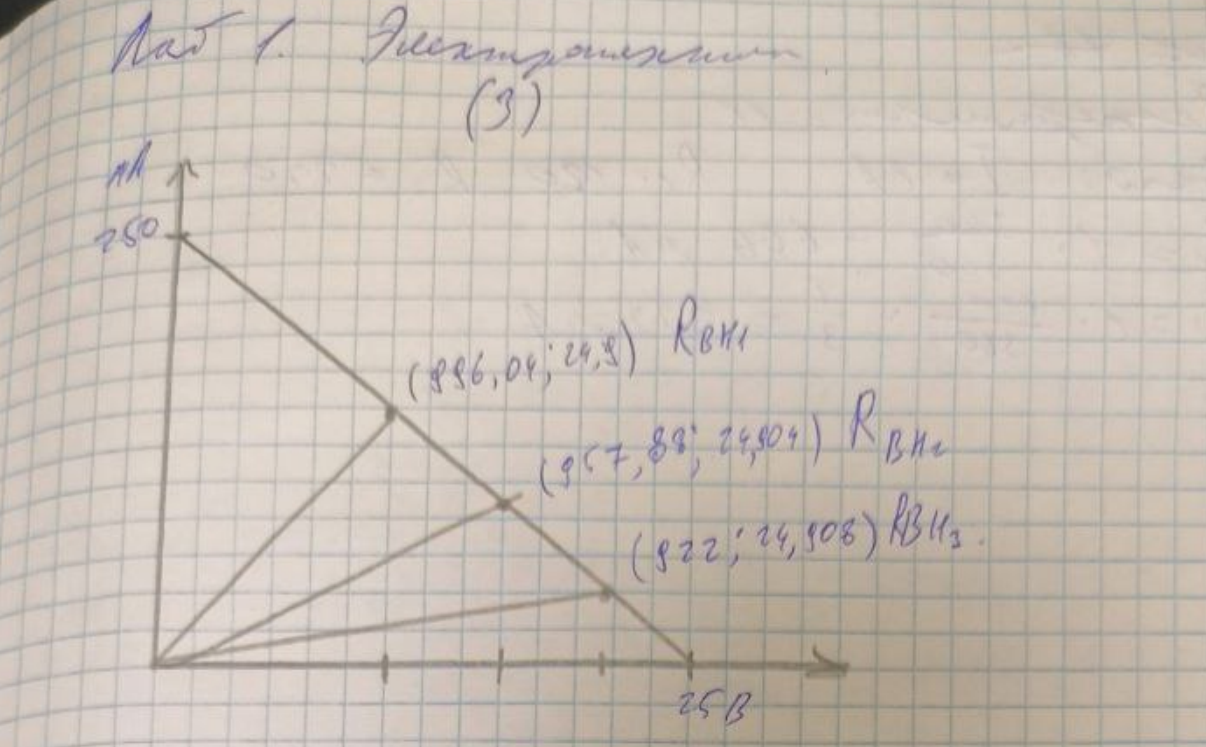 Лаб 1. Электротехника
(3)
мА
250
(996,04; 24,9) RВН1
(957,88; 24,904) RВН2
(922; 24,908) RВН3.
25В